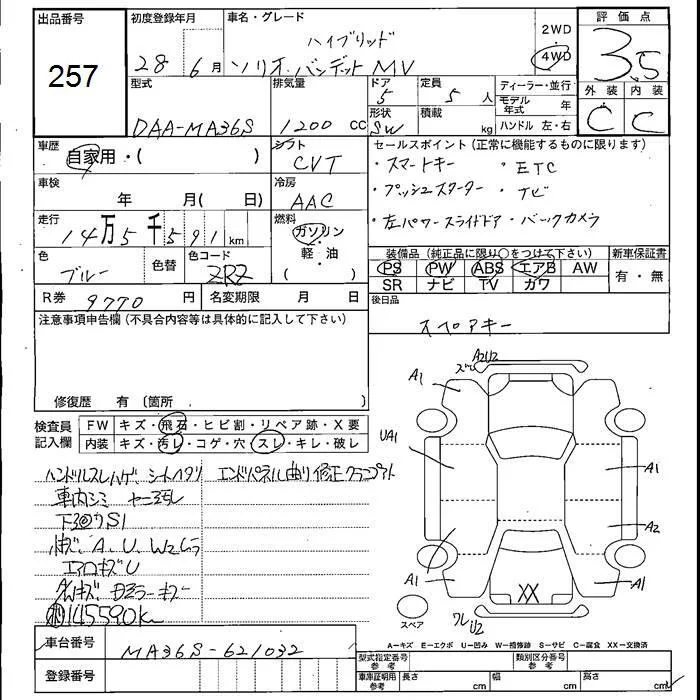 出品番号
257
初度登録年月
28年6月
車名・グレード
ハイブリッド
ソリオ・バンデット MV
2WD
4WD
評価点
3.5
外装 内装
C C
型式
DAA-MA36S
排気量
1200 cc
ドア
5
形状
SW
定員
5 人
積載
kg
ディーラー・並行
モデル年式 年
ハンドル 左・右
車歴
自家用・( )
シフト
CVT
セールスポイント (正常に機能するものに限ります)
・スマートキー ・ETC
・プッシュスターター ・ナビ
・左パワースライドドア・バックカメラ
車検
年 月( 日)
冷房
AAC
走行
14万5千591km
燃料
ガソリン
・
軽・油
( )
色
ブルー
色替
色コード
ZRZ
装備品 (純正品に限り○をつけて下さい)
PS PW ABS エアB AW
SR ナビ TV カワ
新車保証書
有・無
R券 9770 円
名変期限 月 日
後日品
スペアキー
注意事項申告欄 (不具合内容等は具体的に記入して下さい)
修復歴 有 〔箇所 〕
検査員記入欄
FW キズ・飛石・ヒビ割・リペア跡・X要
内装 キズ・汚レ・コゲ・穴・スレ・キレ・破レ
ハンドルスレハゲ、シートヘタリ
エンドパネル曲り修正
車内シミ
下回りS1
A、U、W2
エアロキズU
145590km
A2U2
A1
UA1
A1
A2
A1
A1
XX
ワレU2
スペア
A-キズ E-エクボ U-凹み W-補修跡 S-サビ C-腐食 XX-交換済
車台番号 MA36S-621032
登録番号
型式指定番号 参考
類別区分番号 参考
車庫証明用 参考
長さ cm 幅 cm 高さ cm